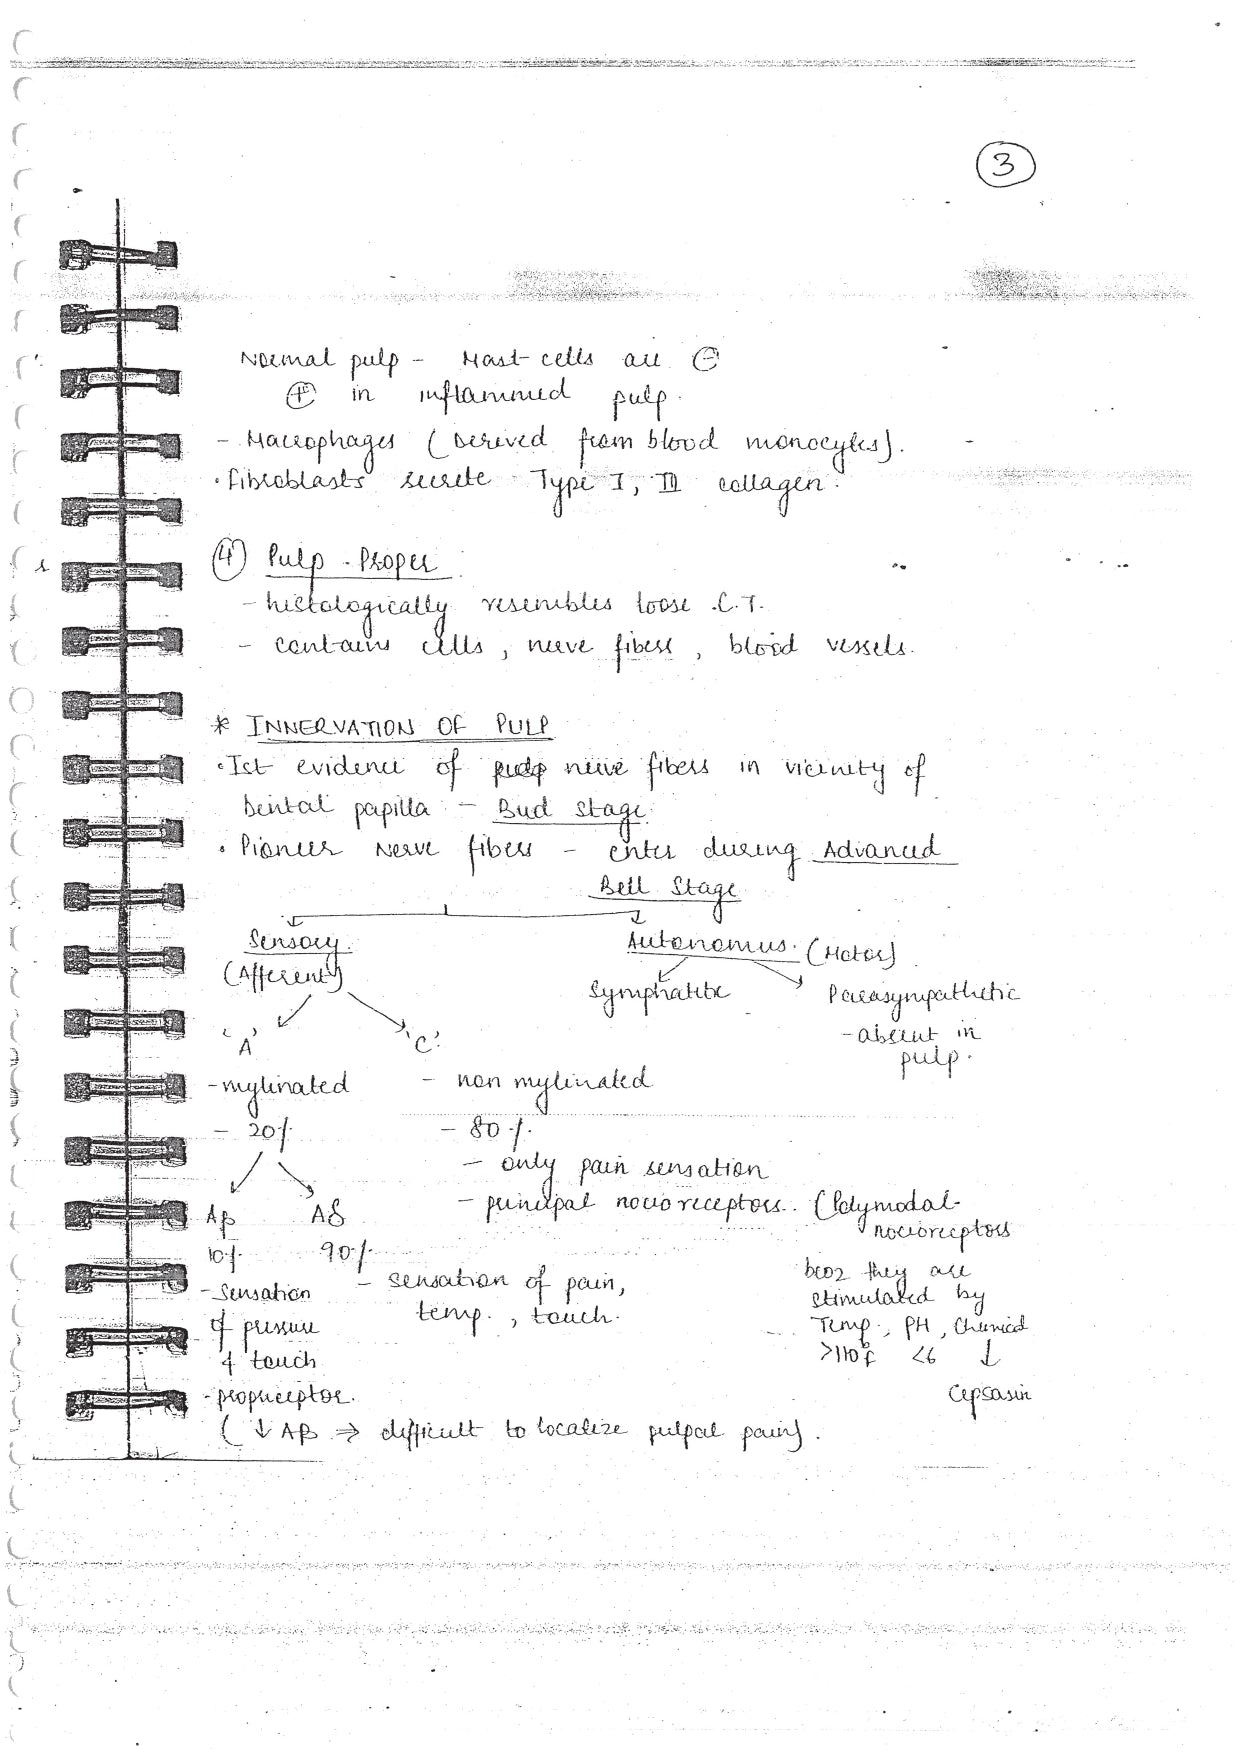 3
Normal pulp - Mast cells are ⊖
⊕ in inflammed pulp.
- Macrophages (Derived from blood monocytes).
• Fibroblasts secrete Type I, III collagen.
④ Pulp Proper
- histologically resembles loose C.T.
- contains cells, nerve fibers, blood vessels.
* INNERVATION OF PULP
• Ist evidence of nerve fibers in vicinity of
Dental papilla - Bud Stage.
• Pioneer Nerve fibers - enter during Advanced
Bell Stage
Sensory. Autonomus. (Motor)
(Afferent)
Symphatetic Parasympathetic
- absent in
pulp.
'A' 'C'
- mylinated - non mylinated
- 20% - 80%
- only pain sensation
- principal nocioreceptors. (Polymodal
nocioreceptors
Aβ Aδ
10% 90%
- Sensation - sensation of pain,
of pressure temp., touch.
& touch
- propriceptor.
bcoz they are
stimulated by
Temp., PH, Chemical
>110°f <6 ↓
Cepsasin
(↓ Aβ ⇒ difficult to localize pulpal pain).